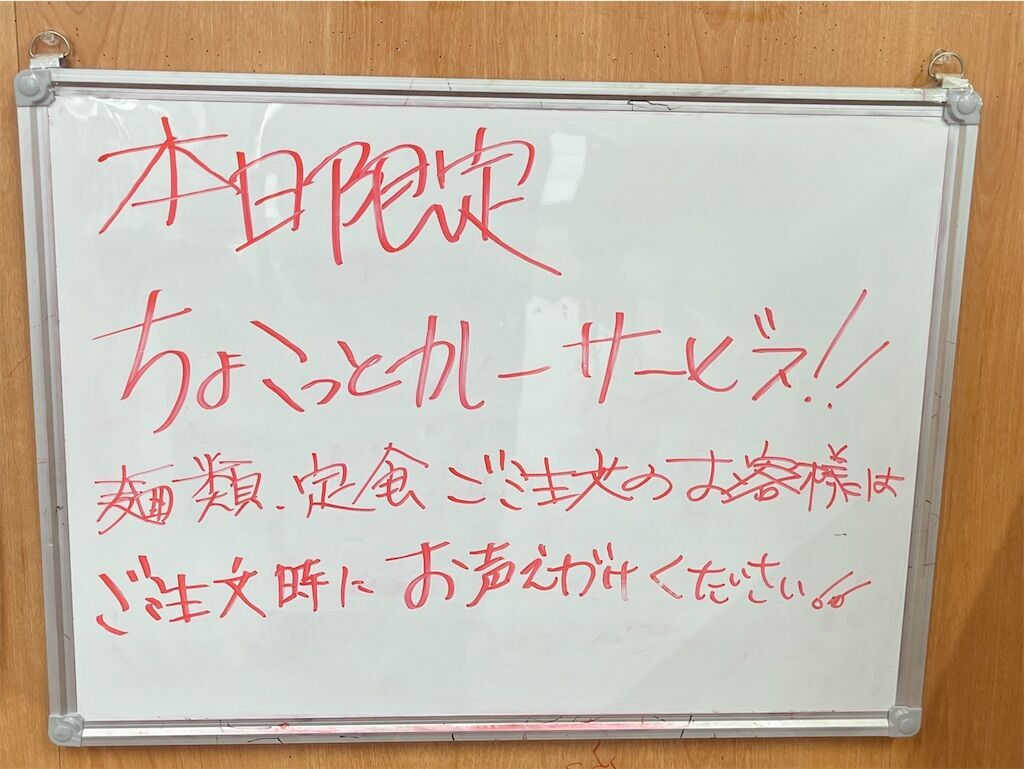 本日限定
ちょこっとカレーサービス!!
麺類.定食ご注文のお客様は
ご注文時にお声えがけください!!